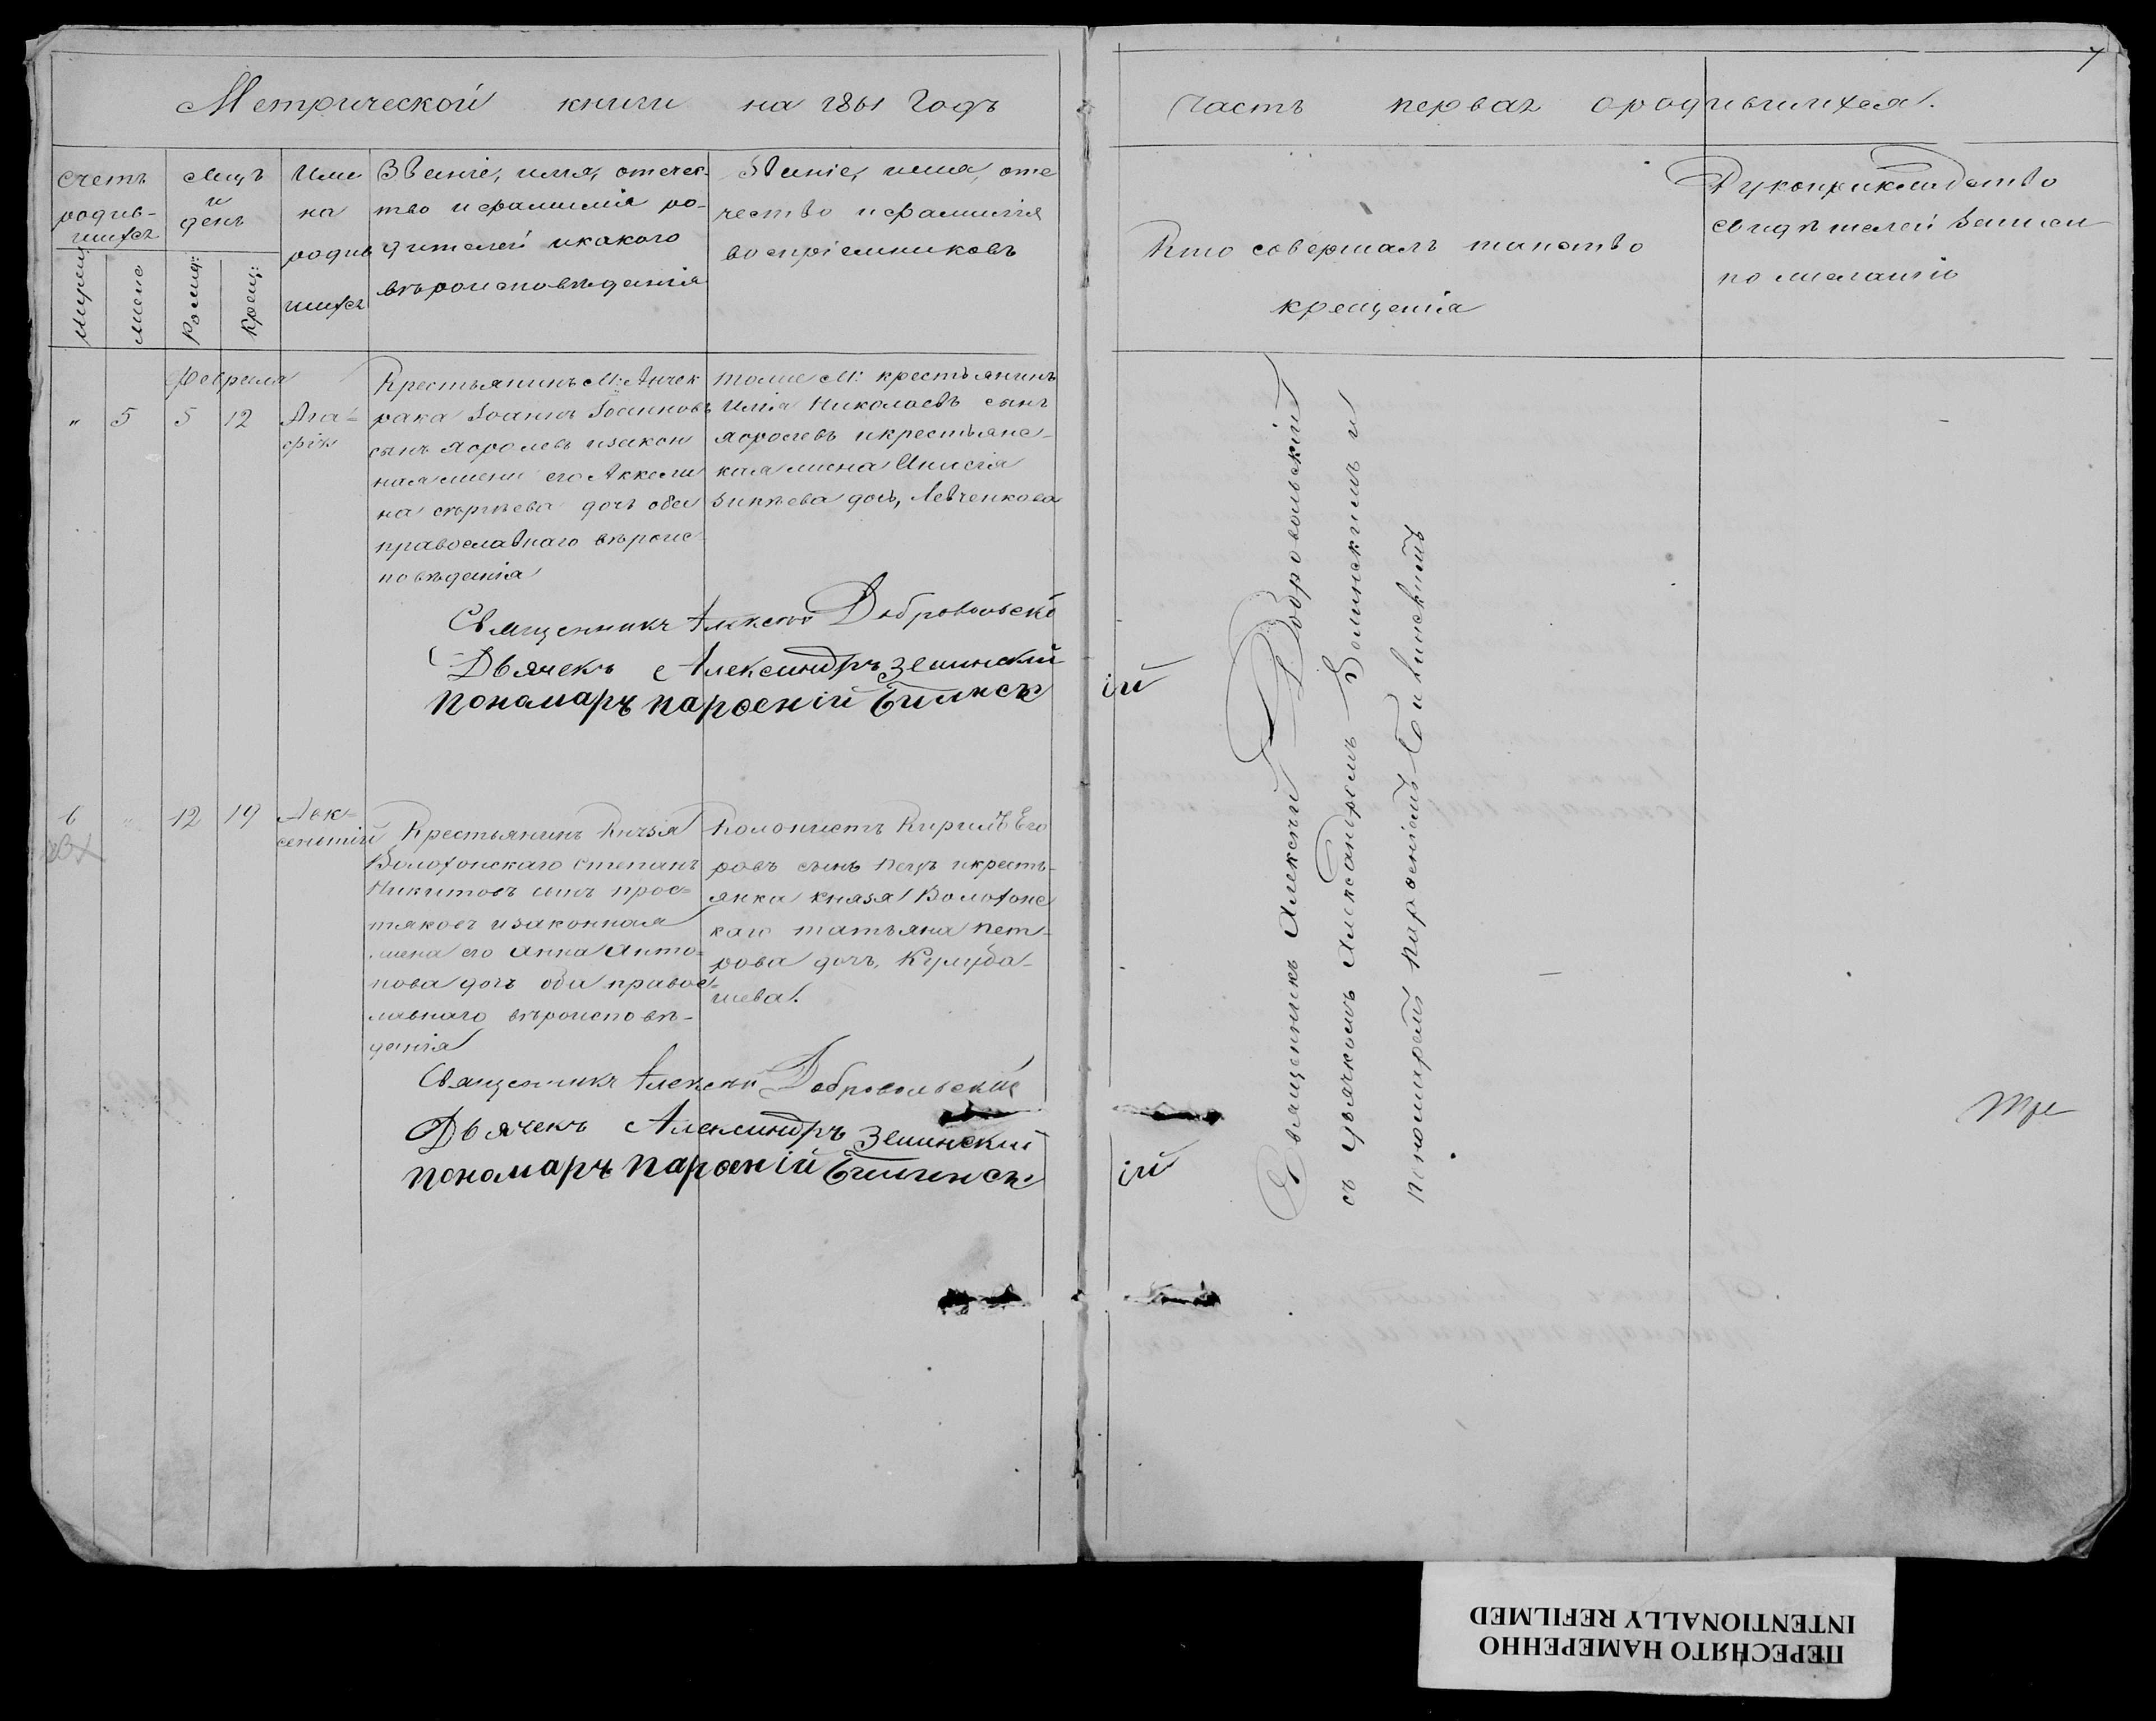 Метрической книги на 1861 Годъ
Часть первая о родившихся.
7
Счетъ родив-шихся
Мцъ и день
Име на родив шихся
Званіе, имя, отечес-
тво и фамилія ро-
дителей и какого
вѣроисповѣданія
Званіе, имя, оте
чество и фамилія
воспріемниковъ
Кто совершалъ таинство
крещенія
Рукоприкладство
свидѣтелей записи
по желанію
женс
Рожд:
Крещ:
Февраля
" 5 5 12
Ага-
фія
Крестьянинъ М:
Іоаннъ Іоанновъ
сынъ и закон
ная жена его Аккели
на дочь оба
православнаго вѣроис-
повѣданія
тогоже М: крестьянинъ
Илія Николаевъ сынъ
и крестьянс-
кая жена Анисія
дочь, Левченкова
Священникъ Алексей Добровольскій
Дьячекъ Александръ Зелинскій
Пономарь Парѳеній
6 " 12 19
Авк-
сентій
Крестьянинъ Князя
Волохонскаго Степанъ
Никитовъ сынъ Прос-
тяковъ и законная
жена его Анна Анто-
нова дочь оба правос-
лавнаго вѣроисповѣ-
данія
Колонистъ Кирилъ Его
ровъ сынъ и кресть-
янка князя Волохонс
каго Татьяна Пет-
рова дочь,
Священникъ Алексей Добровольскій
Дьячекъ Александръ Зелинскій
Пономарь Парѳеній
Священникъ Алексей Добровольскій
съ дьячкомъ Александромъ Зелинскимъ и
пономаремъ Парѳеніемъ
Тре
ПЕРЕСНЯТО НАМЕРЕННО
INTENTIONALLY REFILMED